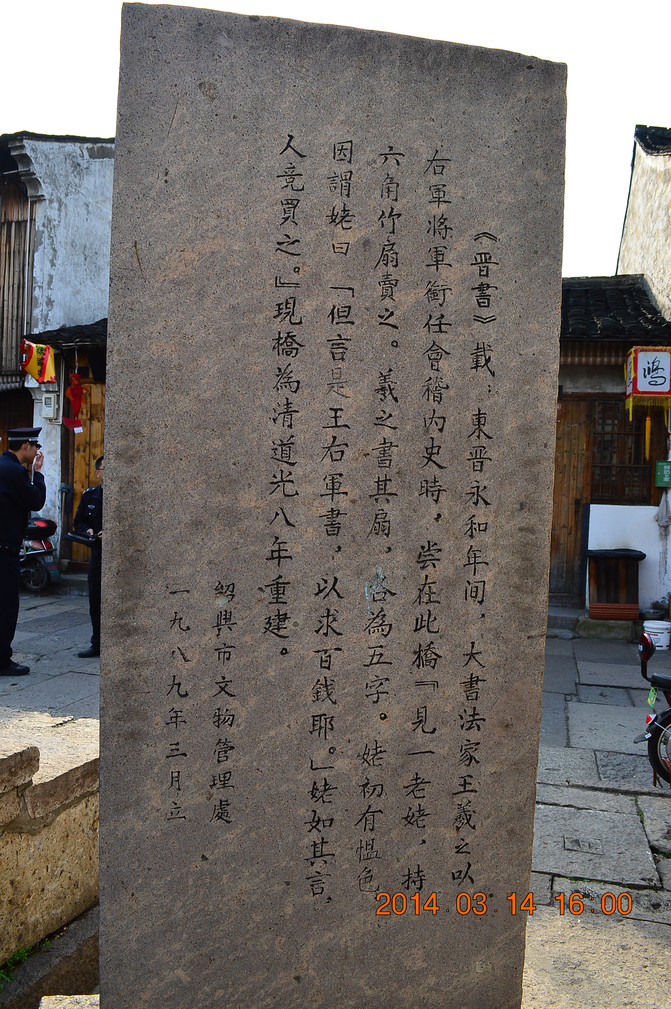 《晋書》载：東晋永和年间，大書法家王羲之以
右軍将軍銜任會稽内史時，尝在此橋『見一老姥，持
六角竹扇賣之。羲之書其扇，各為五字。姥初有愠色
因謂姥曰「但言是王右軍書，以求百錢耶。」姥如其言，
人竞買之。』現橋為清道光八年重建。
紹興市文物管理處
一九八九年三月立
鴻
2014.03.14 16:00